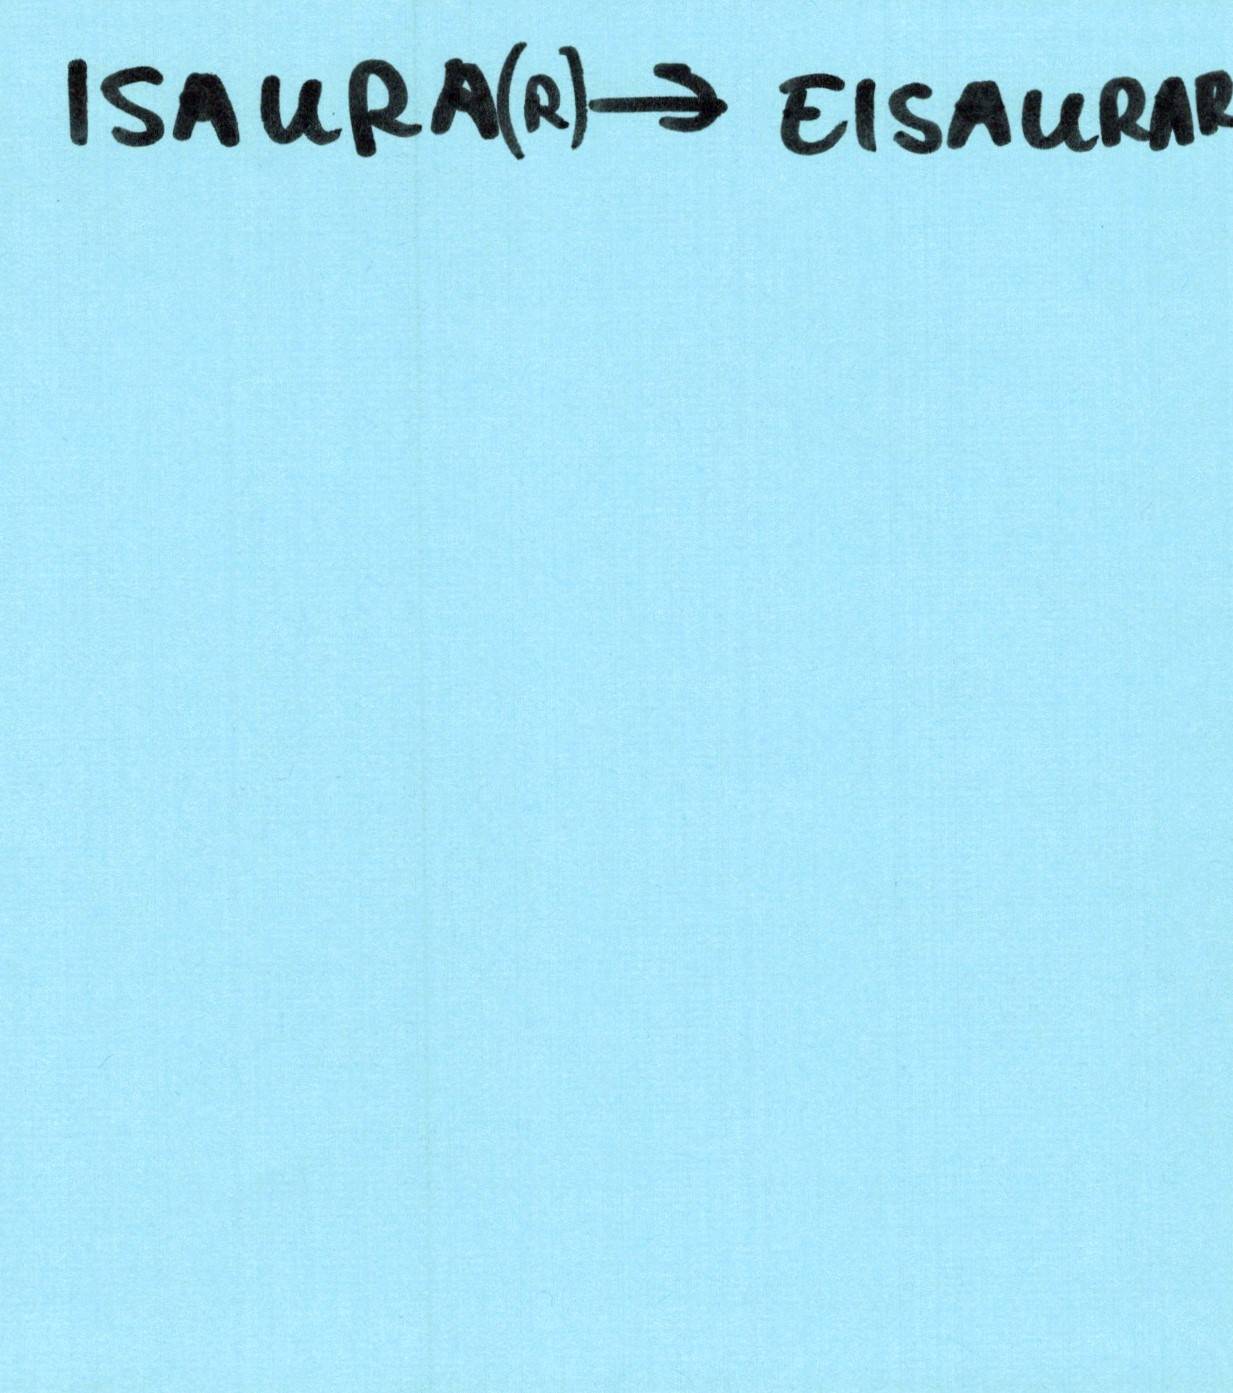 ISAURA(R) → EISAURAR